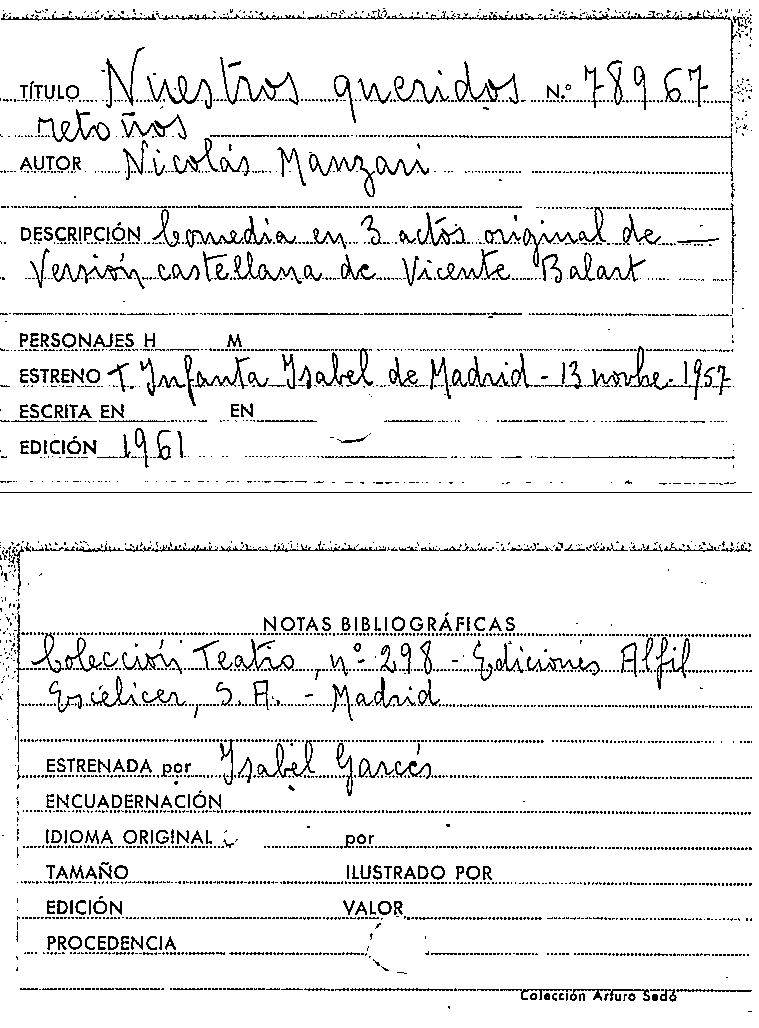 TÍTULO Nuestros queridos N.º 78967
retoños
AUTOR Nicolás Manzari
DESCRIPCIÓN Comedia en 3 actos original de —
Versión castellana de Vicente Balart
PERSONAJES H M
ESTRENO T. Infanta Isabel de Madrid - 13 novbe. 1957
ESCRITA EN EN
EDICIÓN 1961
NOTAS BIBLIOGRÁFICAS
Colección Teatro, nº 298 - Ediciones Alfil
Escélicer, S. A. - Madrid
ESTRENADA por Isabel Garcés
ENCUADERNACIÓN
IDIOMA ORIGINAL por
TAMAÑO ILUSTRADO POR
EDICIÓN VALOR
PROCEDENCIA
Colección Arturo Sedó